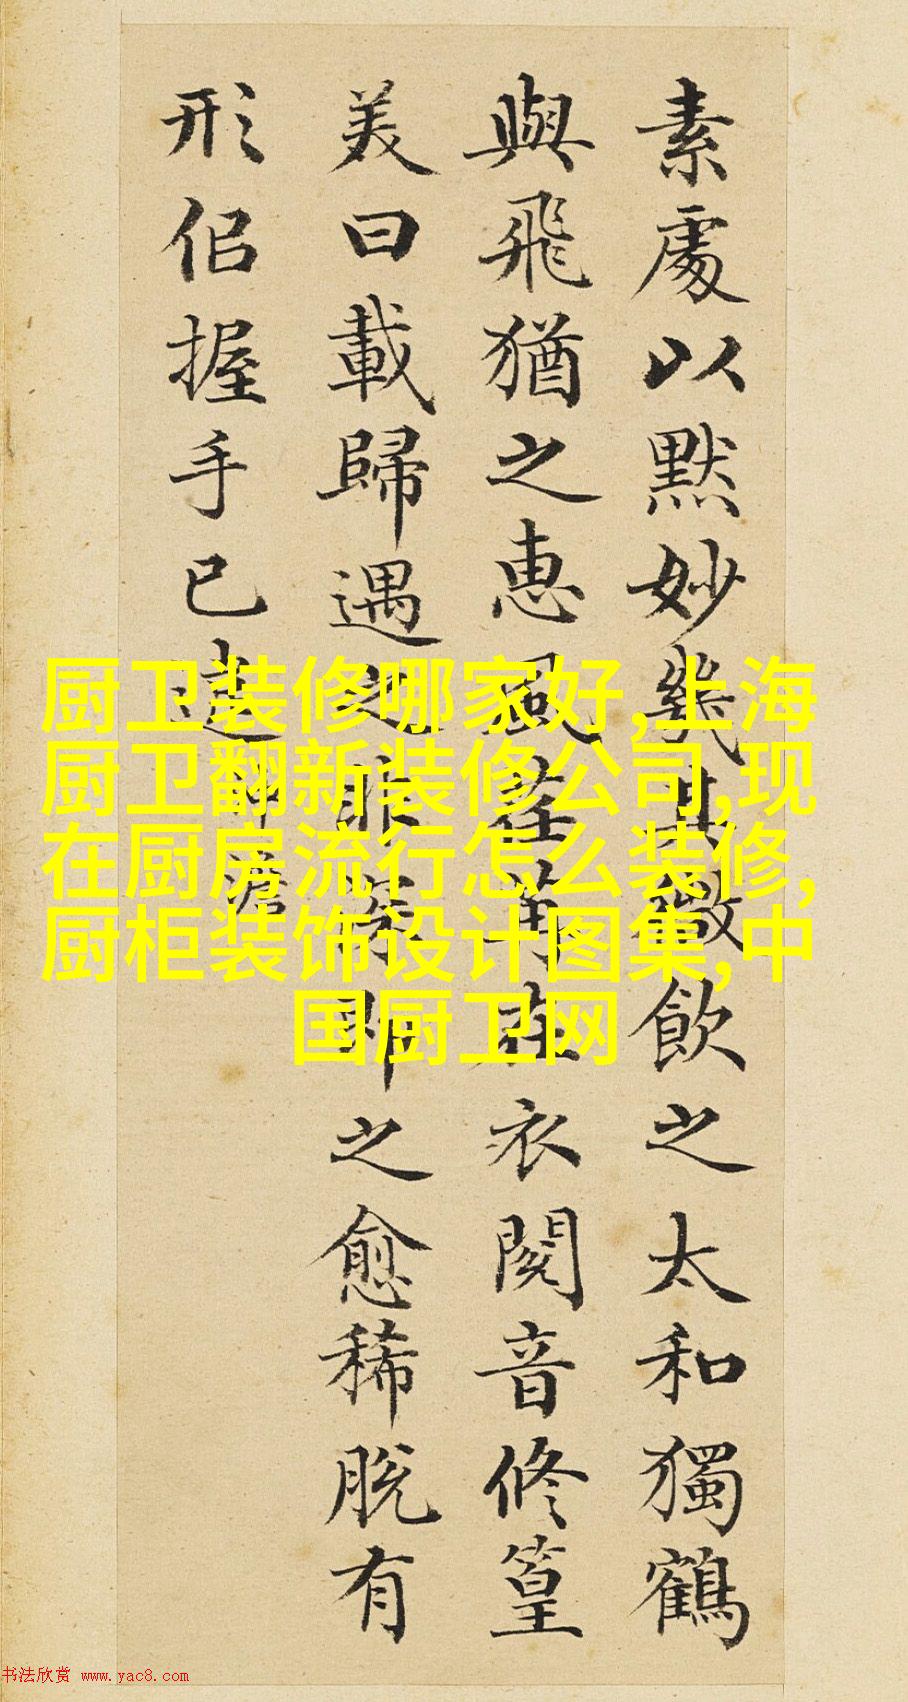 素處以默妙幾其微飲之太和獨鶴
與飛猶之惠風荏苒在衣閱音修篁
美曰載歸遇之匪深即之愈稀脫有
形侣握手已違
沖澹
厨卫装修哪家好,上海
厨卫翻新装修公司,现
在厨房流行怎么装修,
厨柜装饰设计图集,中
国厨卫网
书法欣赏 www.yac8.com